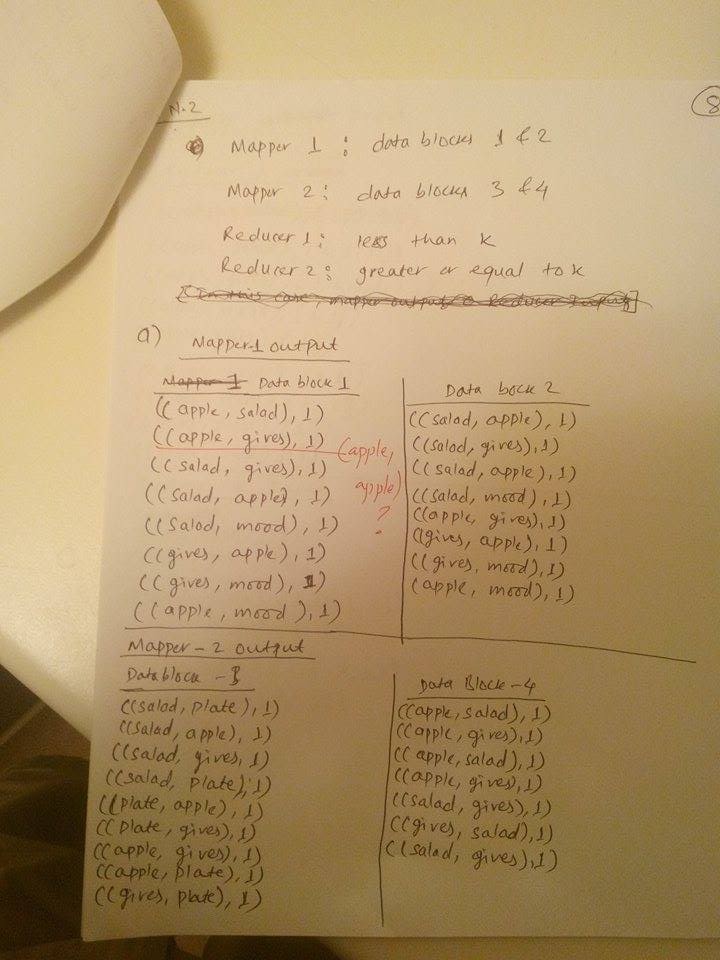 N.2
8
Mapper 1 : data blocks 1 & 2
Mapper 2 : data blocks 3 & 4
Reducer 1 : less than k
Reducer 2 : greater or equal to k
[In this case, mapper output Reducer
a) Mapper-1 output
Mapper-1 Data block 1
((apple, salad), 1)
((apple, gives), 1) (apple,
apple)
?
((salad, gives), 1)
((salad, apple), 1)
((salad, mood), 1)
((gives, apple), 1)
((gives, mood), 1)
((apple, mood), 1)
Data bock 2
((salad, apple), 1)
((salad, gives), 1)
((salad, apple), 1)
((salad, mood), 1)
((apple, gives), 1)
((gives, apple), 1)
((gives, mood), 1)
(apple, mood), 1)
Mapper-2 output
Datablock-3
((salad, plate), 1)
((salad, apple), 1)
((salad, gives, 1)
((salad, plate), 1)
((plate, apple), 1)
((plate, gives), 1)
((apple, gives), 1)
((apple, plate), 1)
((gives, plate), 1)
Data Block-4
((apple, salad), 1)
((apple, gives), 1)
((apple, salad), 1)
((apple, gives), 1)
((salad, gives), 1)
((gives, salad), 1)
((salad, gives), 1)